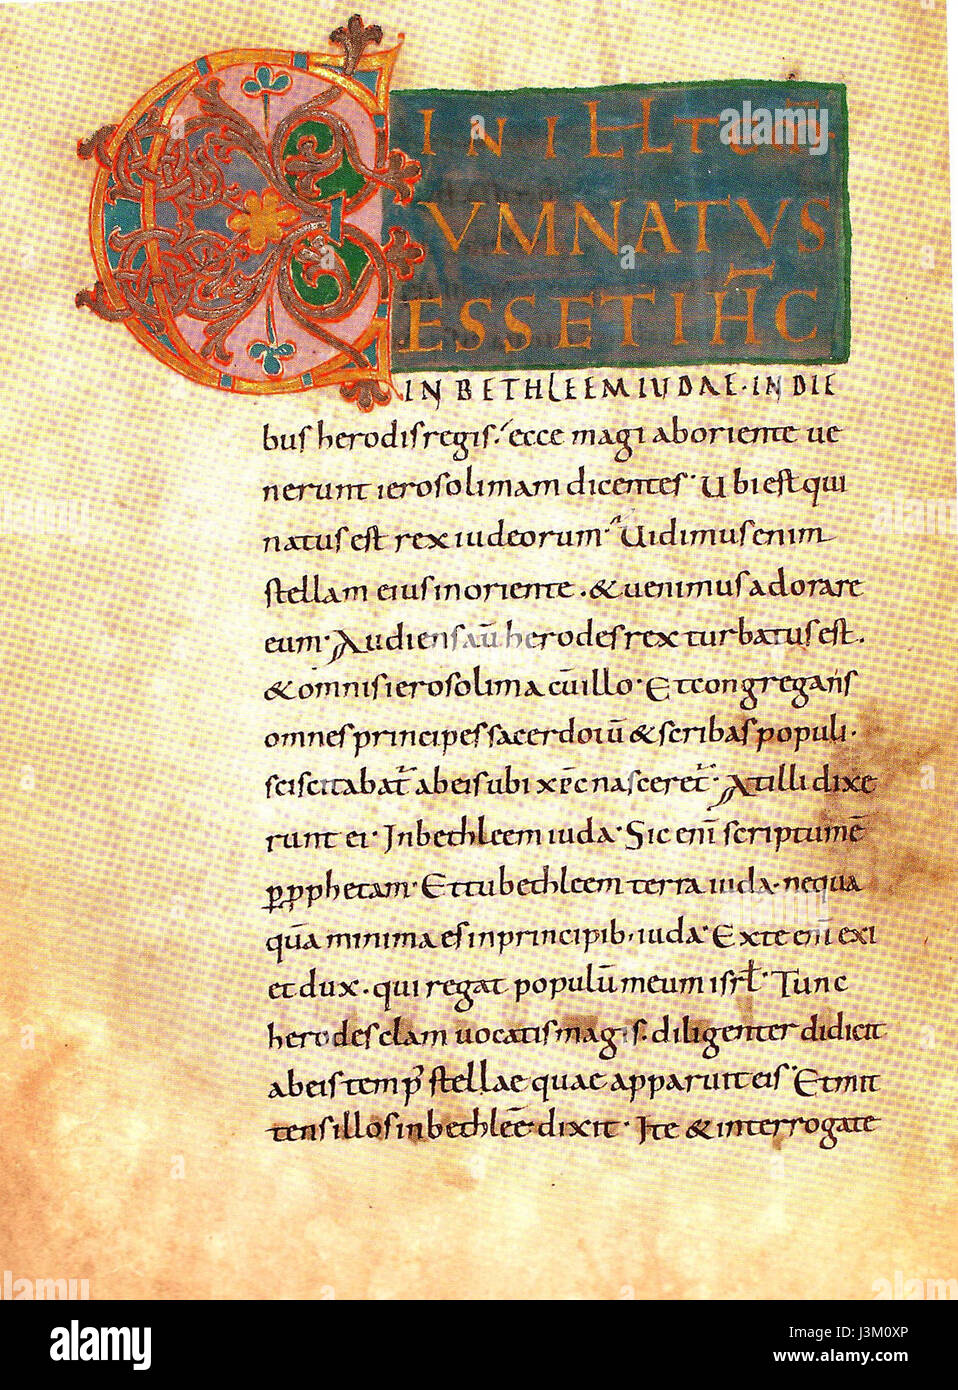 IN ILLT̄OR̄
CUM NATUS
ESSET IH̄C
IN BETHLEEM IUDAE · IN DIE
bus herodis regis. ecce magi ab oriente ue
nerunt ierosolimam dicentes · Ubi est qui
natus est rex iudeorum · Uidimus enim
stellam eius in oriente . & uenimus adorare
eum · Audiens aū herodes rex turbatus est .
& omnis ierosolima cū illo · Et congregans
omnes principes sacerdotū & scribas populi ·
sciscitabat̄ ab eis ubi xp̄c nasceret̄ · At illi dixe
runt ei · In bethleem iuda · Sic enī scriptum ē
ꝑ ꝓphetam · Et tu bethleem terra iuda · nequa
quā minima es in principib · iuda · Ex te enī exi
et dux . qui regat populū meum isrl̄ · Tunc
herodes clam uocatis magis . diligenter didicit
ab eis temp̄ stellae quae apparuit eis · Et mit
tens illos in bethleē dixit · Ite & interrogate
alamy
alamy
Image ID: J3M0XP
www.alamy.com